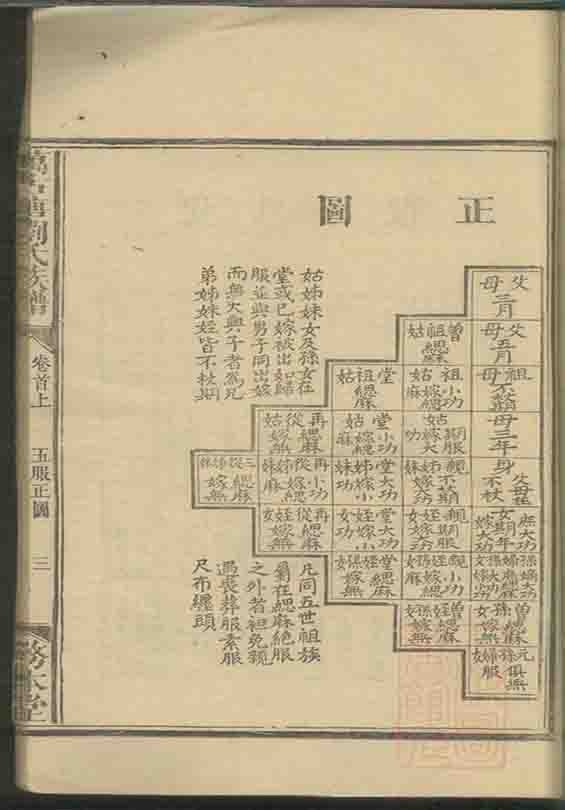 正圖
父母三月
父母五月
曾祖姑緦麻
祖母不杖期
祖姑小功嫁緦麻
堂祖姑緦麻
母三年
姑期服嫁大功
堂姑小功嫁緦麻
再從姑緦麻嫁無
身
親姊妹不杖期嫁大功
堂姊妹大功嫁小功
再從姊妹小功嫁緦麻
三從姊妹緦麻嫁無
親姪女期服嫁大功
堂姪女大功嫁小功
再從姪女緦麻嫁無
姪孫女小功嫁緦麻
堂姪孫女緦麻嫁無
曾姪孫女緦麻嫁無
曾孫女緦麻
元孫婦女俱無服
姑姊妹女及孫女在
堂或已嫁被出如歸
服並與男子同出嫁
而無夫與子者為兄
弟姊妹姪皆不杖期
凡同五世祖族
屬在緦麻絕服
之外者袒免親
遇喪葬服素服
尺布纏頭
劉氏族譜
卷首上
五服正圖
三
務本堂